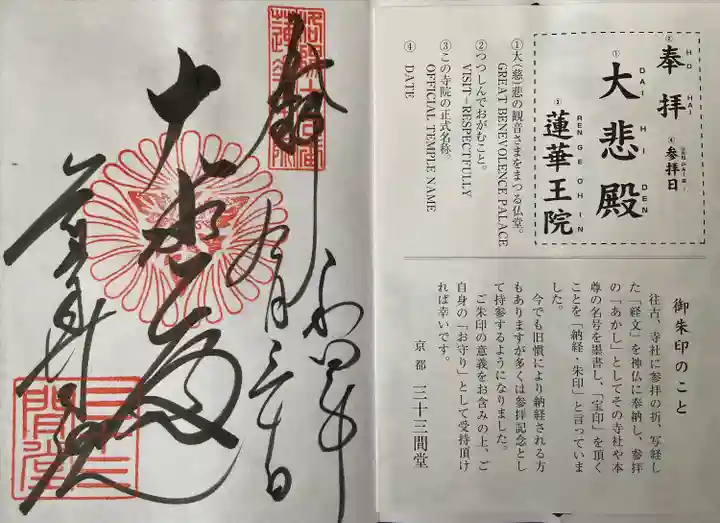 ② 奉拝
HO HAI
④ 参拝日
① 大悲殿
DAI HI DEN
③ 蓮華王院
REN GE OH IN
①大(慈)悲の観音さまをまつる仏堂。
GREAT BENEVOLENCE PALACE
②つつしんでおがむこと。
VISIT=RESPECTFULLY
③この寺院の正式名称。
OFFICIAL TEMPLE NAME
④ DATE
御朱印のこと
往古、寺社に参拝の折、写経し
た「経文」を神仏に奉納し、参拝
の「あかし」としてその寺社や本
尊の名号を墨書し、「宝印」を頂く
ことを「納経・朱印」と言っていま
した。
今でも旧慣により納経される方
もありますが多くは参拝記念とし
て持参するようになりました。
ご朱印の意義をお含みの上、ご
自身の「お守り」として受持頂け
れば幸いです。
京都 三十三間堂
奉拝
大悲殿
蓮華王院
三十三間堂